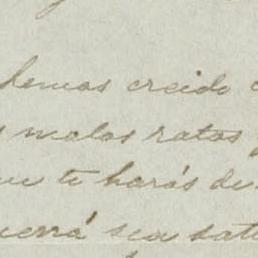 hemos creido
malos ratos
que te harás de
sea sati